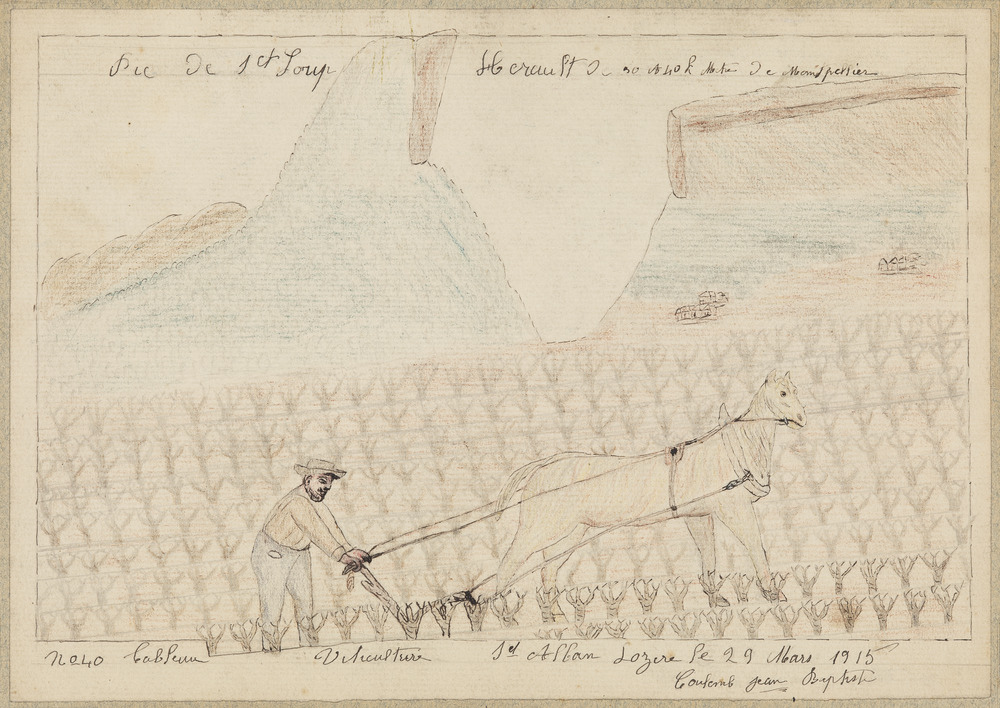 Pic de St Loup Herault de 30 à 40 k Mtre de Montpellier
No 40 tableau Viticulture St Alban Lozere le 29 Mars 1915
Coulomb jean Baptiste